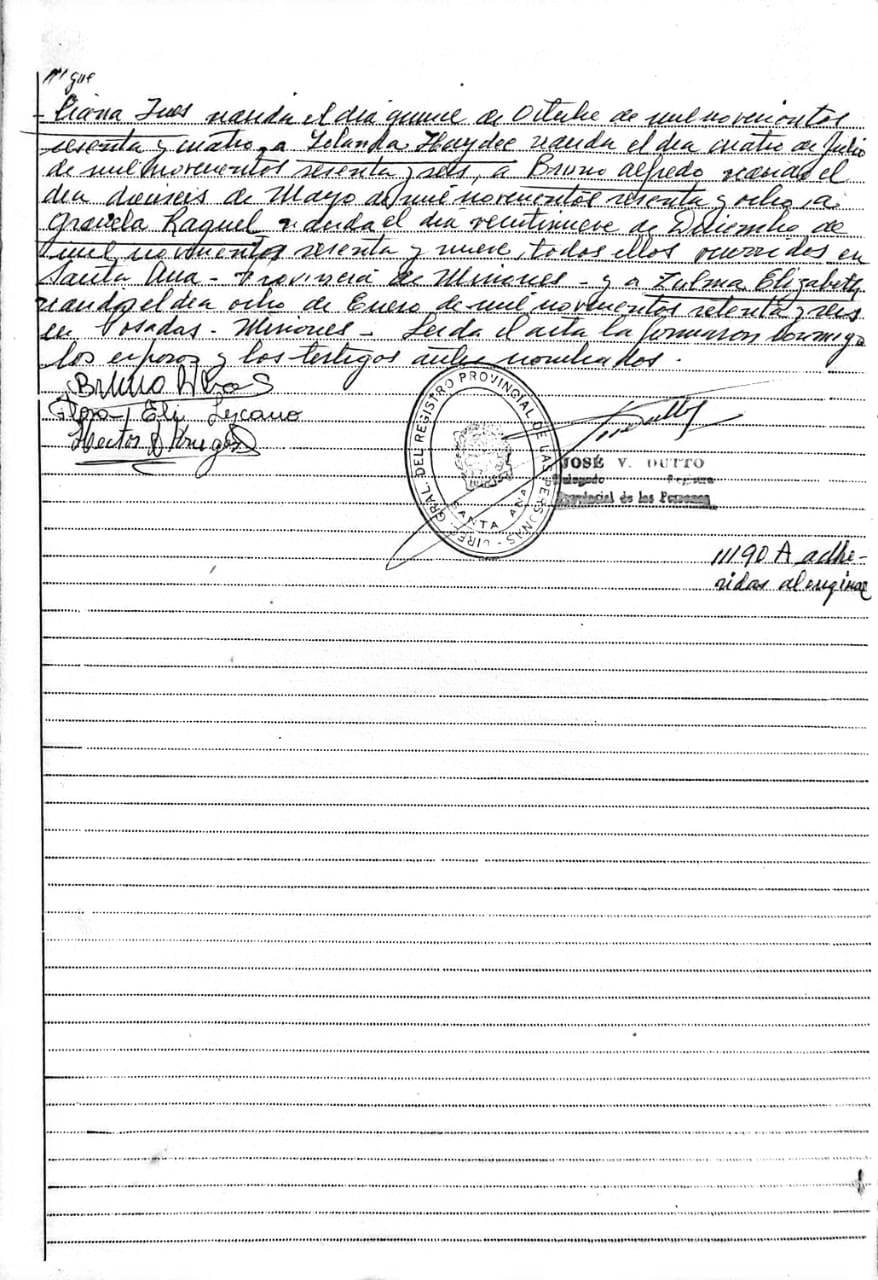 Liana Ines nacida el dia quince de Octubre de mil novecientos
sesenta y cuatro, a Yolanda Haydee nacida el dia cuatro de Julio
de mil novecientos sesenta y seis, a Bruno Alfredo nacido el
dia dieciseis de Mayo de mil novecientos sesenta y ocho, a
Graciela Raquel nacida el dia veintinueve de Diciembre de
mil novecientos sesenta y nueve, todos ellos ocurridos en
Santa Ana - Provincia de Misiones - y a Zulma Elizabeth
nacida el dia ocho de Enero de mil novecientos setenta y seis
en Posadas - Misiones - Leida el acta la firmaron conmigo
los esposos y los testigos antes nombrados.
Bruno
Eli Lescano
Hector Kruger
DIREC. GRAL. DEL REGISTRO PROVINCIAL DE LAS PERSONAS
SANTA ANA
JOSÉ V. DUTTO
Delegado Registro
Provincial de las Personas
11190 A adhe-
ridas al original